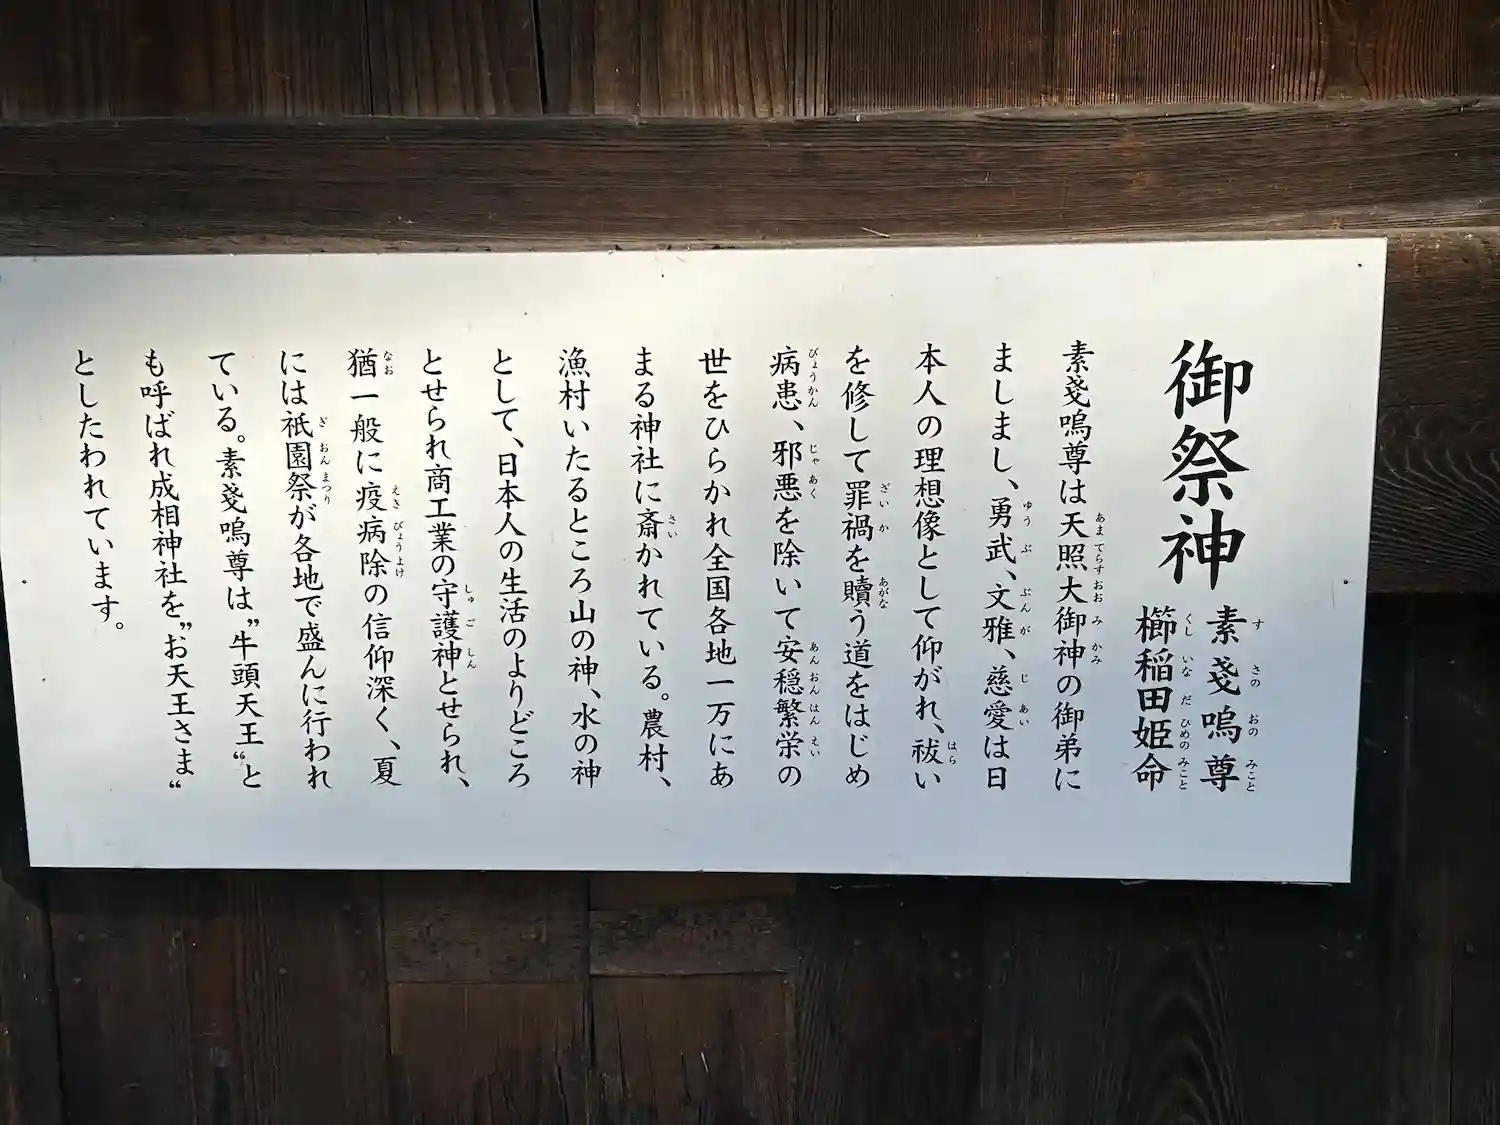 御祭神
素戔嗚尊
櫛稲田姫命
素戔嗚尊は天照大御神の御弟に
ましまし、勇武、文雅、慈愛は日
本人の理想像として仰がれ、祓い
を修して罪禍を贖う道をはじめ
病患、邪悪を除いて安穏繁栄の
世をひらかれ全国各地一万にあ
まる神社に斎かれている。農村、
漁村いたるところ山の神、水の神
として、日本人の生活のよりどころ
とせられ商工業の守護神とせられ、
猶一般に疫病除の信仰深く、夏
には祇園祭が各地で盛んに行われ
ている。素戔嗚尊は〞牛頭天王〝と
も呼ばれ成相神社を〞お天王さま〝
としたわれています。